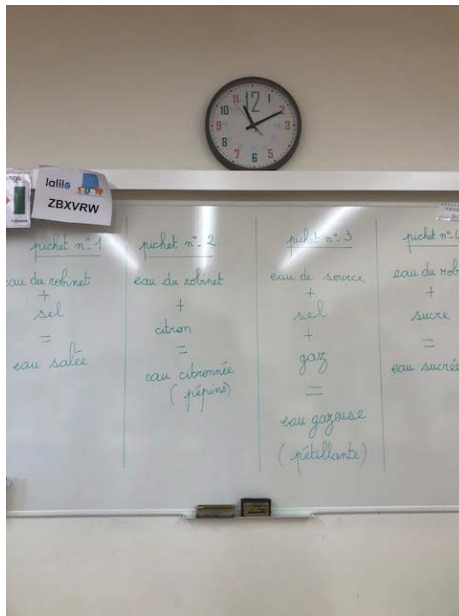 12
1
2
3
4
5
6
7
8
9
10
11
lalilo
ZBXVRW
pichet n°1
eau du robinet
+
sel
=
eau salée
pichet n°2
eau du robinet
+
citron
=
eau citronnée
(pépins)
pichet n°3
eau de source
+
sel
+
gaz
=
eau gazeuse
(pétillante)
pichet n°
eau du rob
+
sucre
=
eau sucrée